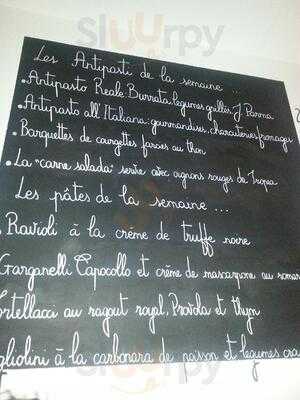 Sluurpy
Les Antipasti de la semaine ...
• Antipasto Reale: Burrata, legumes grillés, J. Parma
• Antipasto all'Italiana: gourmandises, charcuteries, fromages
• Barquettes de courgettes farcies au thon
• La "carne salada" servie avec oignons rouges de Tropea
Les pâtes de la semaine ...
Ravioli à la crème de truffe noire
Garganelli Capocollo et crème de mascarpone au
ortellacci au ragout royal, Provola et thym
gliolini à la carbonara de poisson et legumes